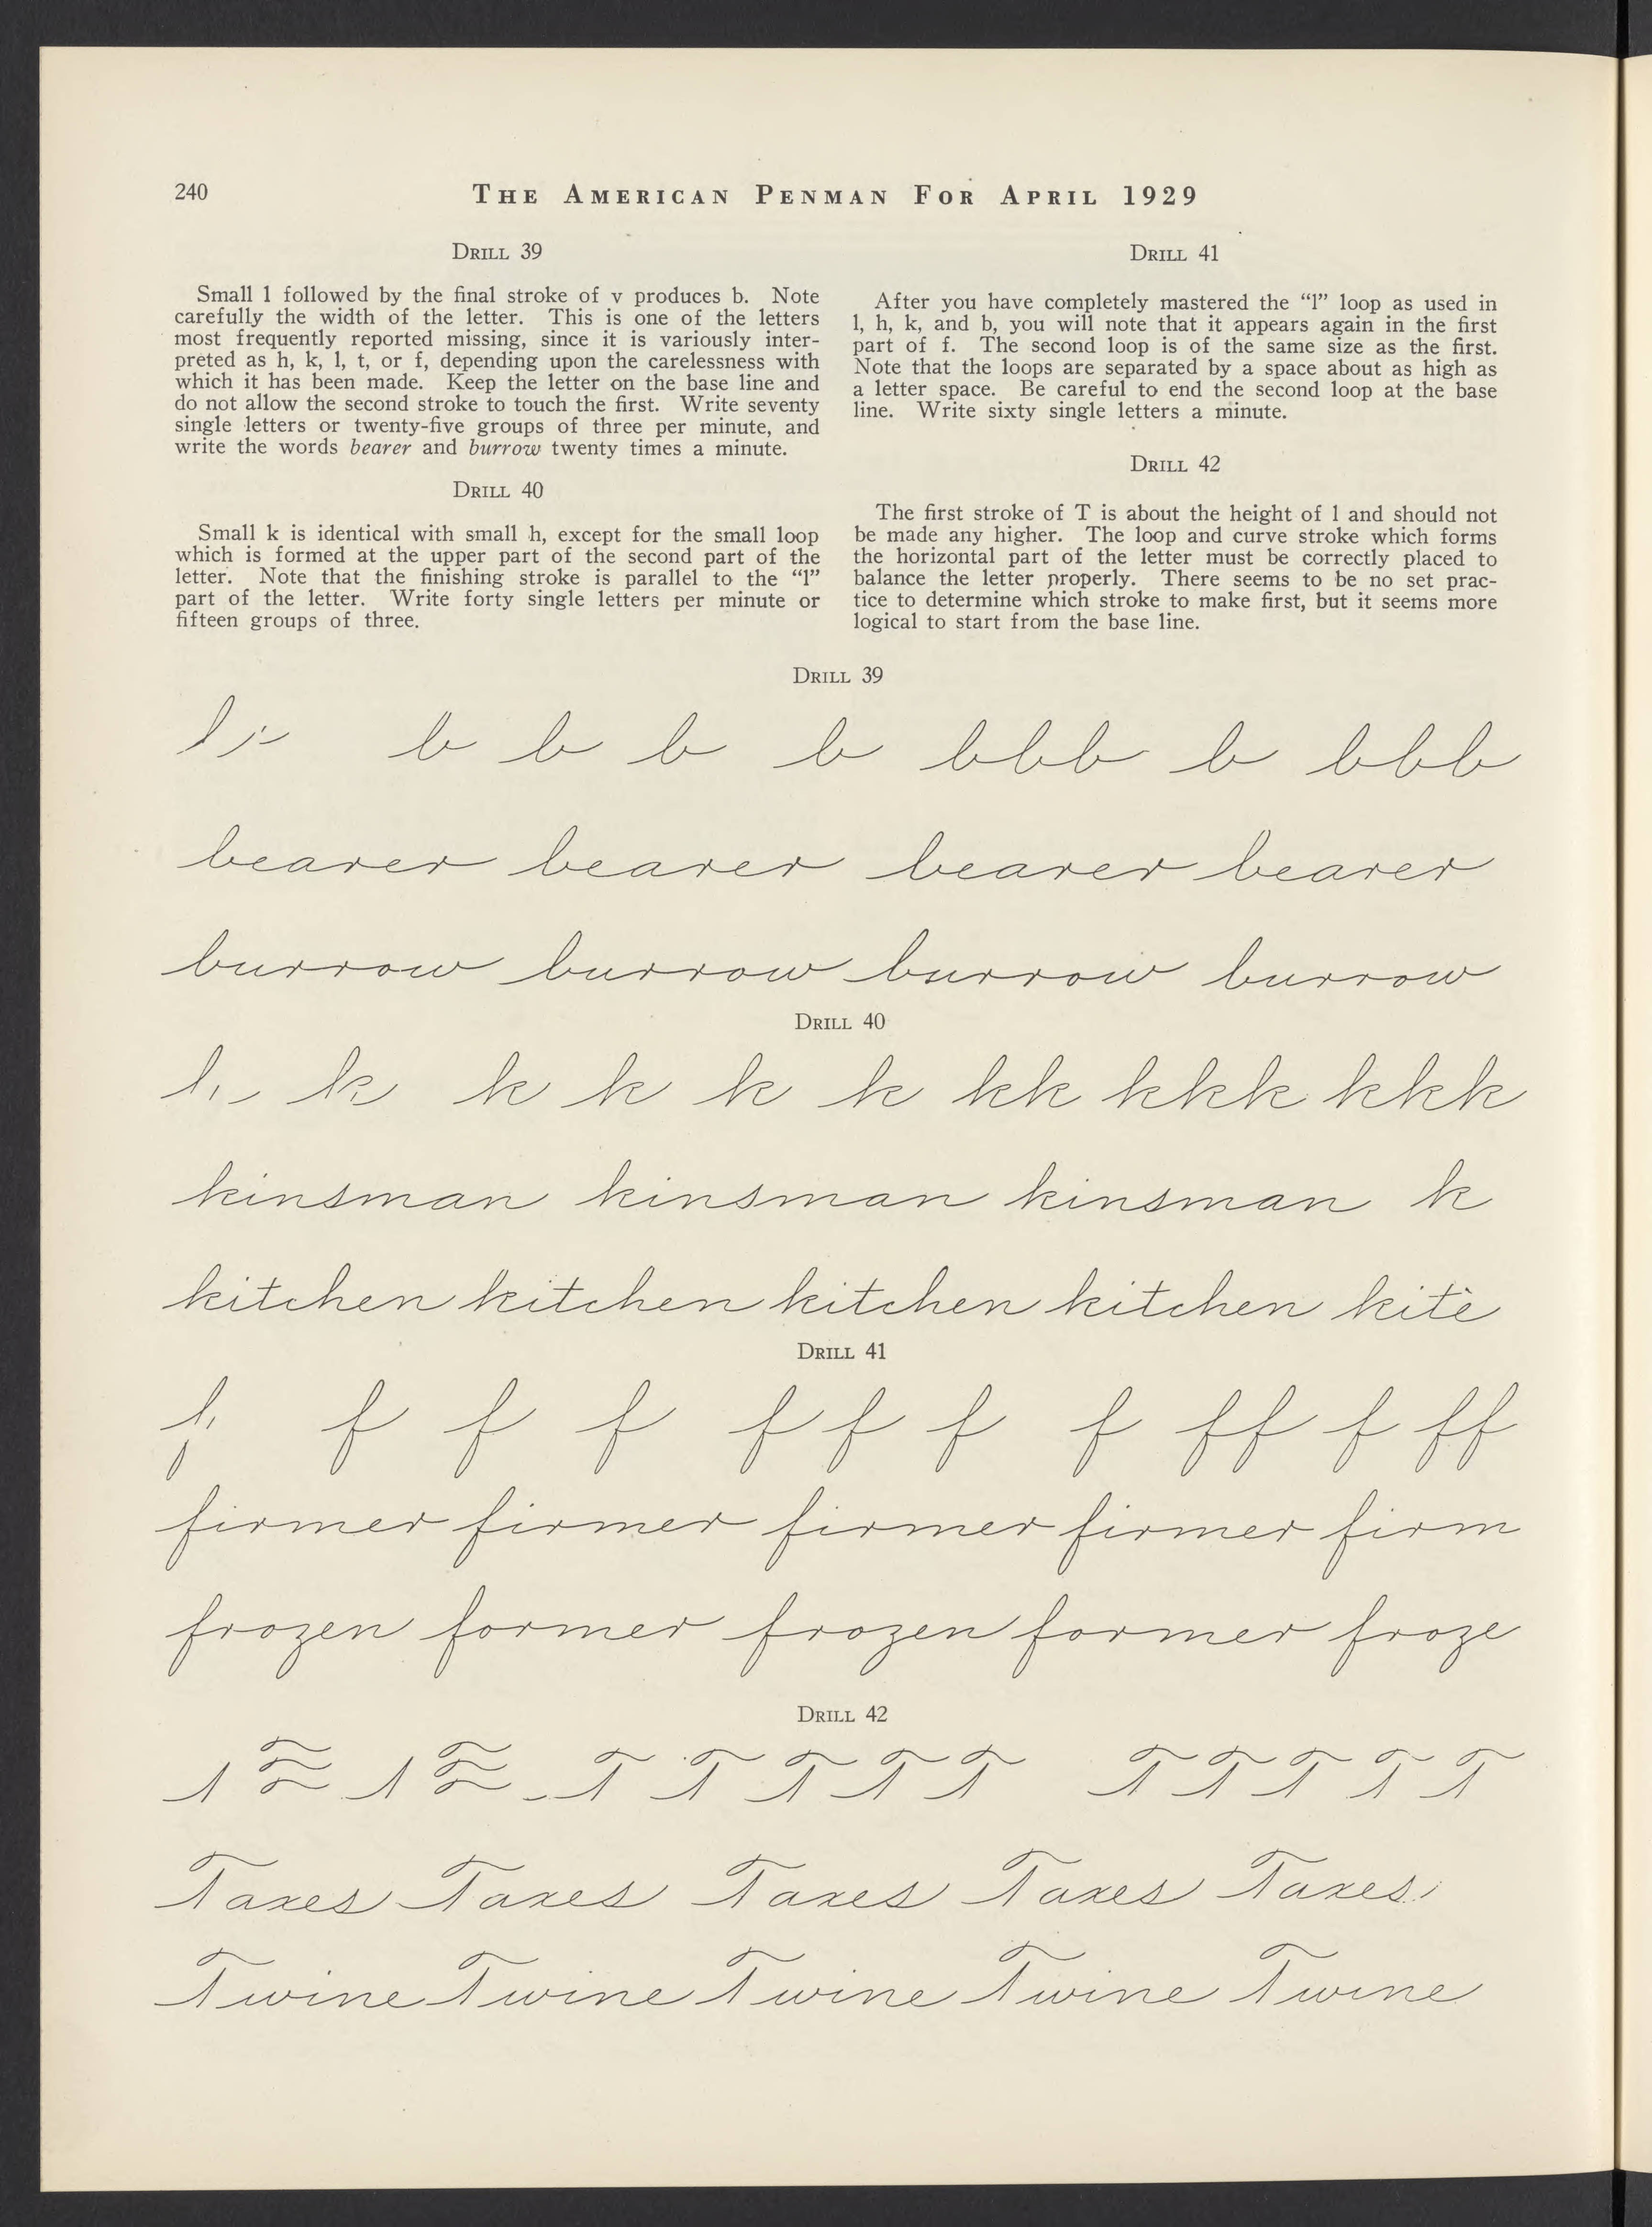 240
THE AMERICAN PENMAN FOR APRIL 1929
DRILL 39
Small l followed by the final stroke of v produces b. Note
carefully the width of the letter. This is one of the letters
most frequently reported missing, since it is variously inter-
preted as h, k, l, t, or f, depending upon the carelessness with
which it has been made. Keep the letter on the base line and
do not allow the second stroke to touch the first. Write seventy
single letters or twenty-five groups of three per minute, and
write the words bearer and burrow twenty times a minute.
DRILL 40
Small k is identical with small h, except for the small loop
which is formed at the upper part of the second part of the
letter. Note that the finishing stroke is parallel to the “l”
part of the letter. Write forty single letters per minute or
fifteen groups of three.
DRILL 41
After you have completely mastered the “l” loop as used in
l, h, k, and b, you will note that it appears again in the first
part of f. The second loop is of the same size as the first.
Note that the loops are separated by a space about as high as
a letter space. Be careful to end the second loop at the base
line. Write sixty single letters a minute.
DRILL 42
The first stroke of T is about the height of l and should not
be made any higher. The loop and curve stroke which forms
the horizontal part of the letter must be correctly placed to
balance the letter properly. There seems to be no set prac-
tice to determine which stroke to make first, but it seems more
logical to start from the base line.
DRILL 39
b b b b bbb b bbb
bearer bearer bearer bearer
burrow burrow burrow burrow
DRILL 40
k k k k k kk kkk kkk
kinsman kinsman kinsman k
kitchen kitchen kitchen kitchen kite
DRILL 41
f f f f f f f ff f ff
firmer firmer firmer firmer firm
frozen former frozen former froze
DRILL 42
T T T T T T T T T T
Taxes Taxes Taxes Taxes Taxes
Twine Twine Twine Twine Twine